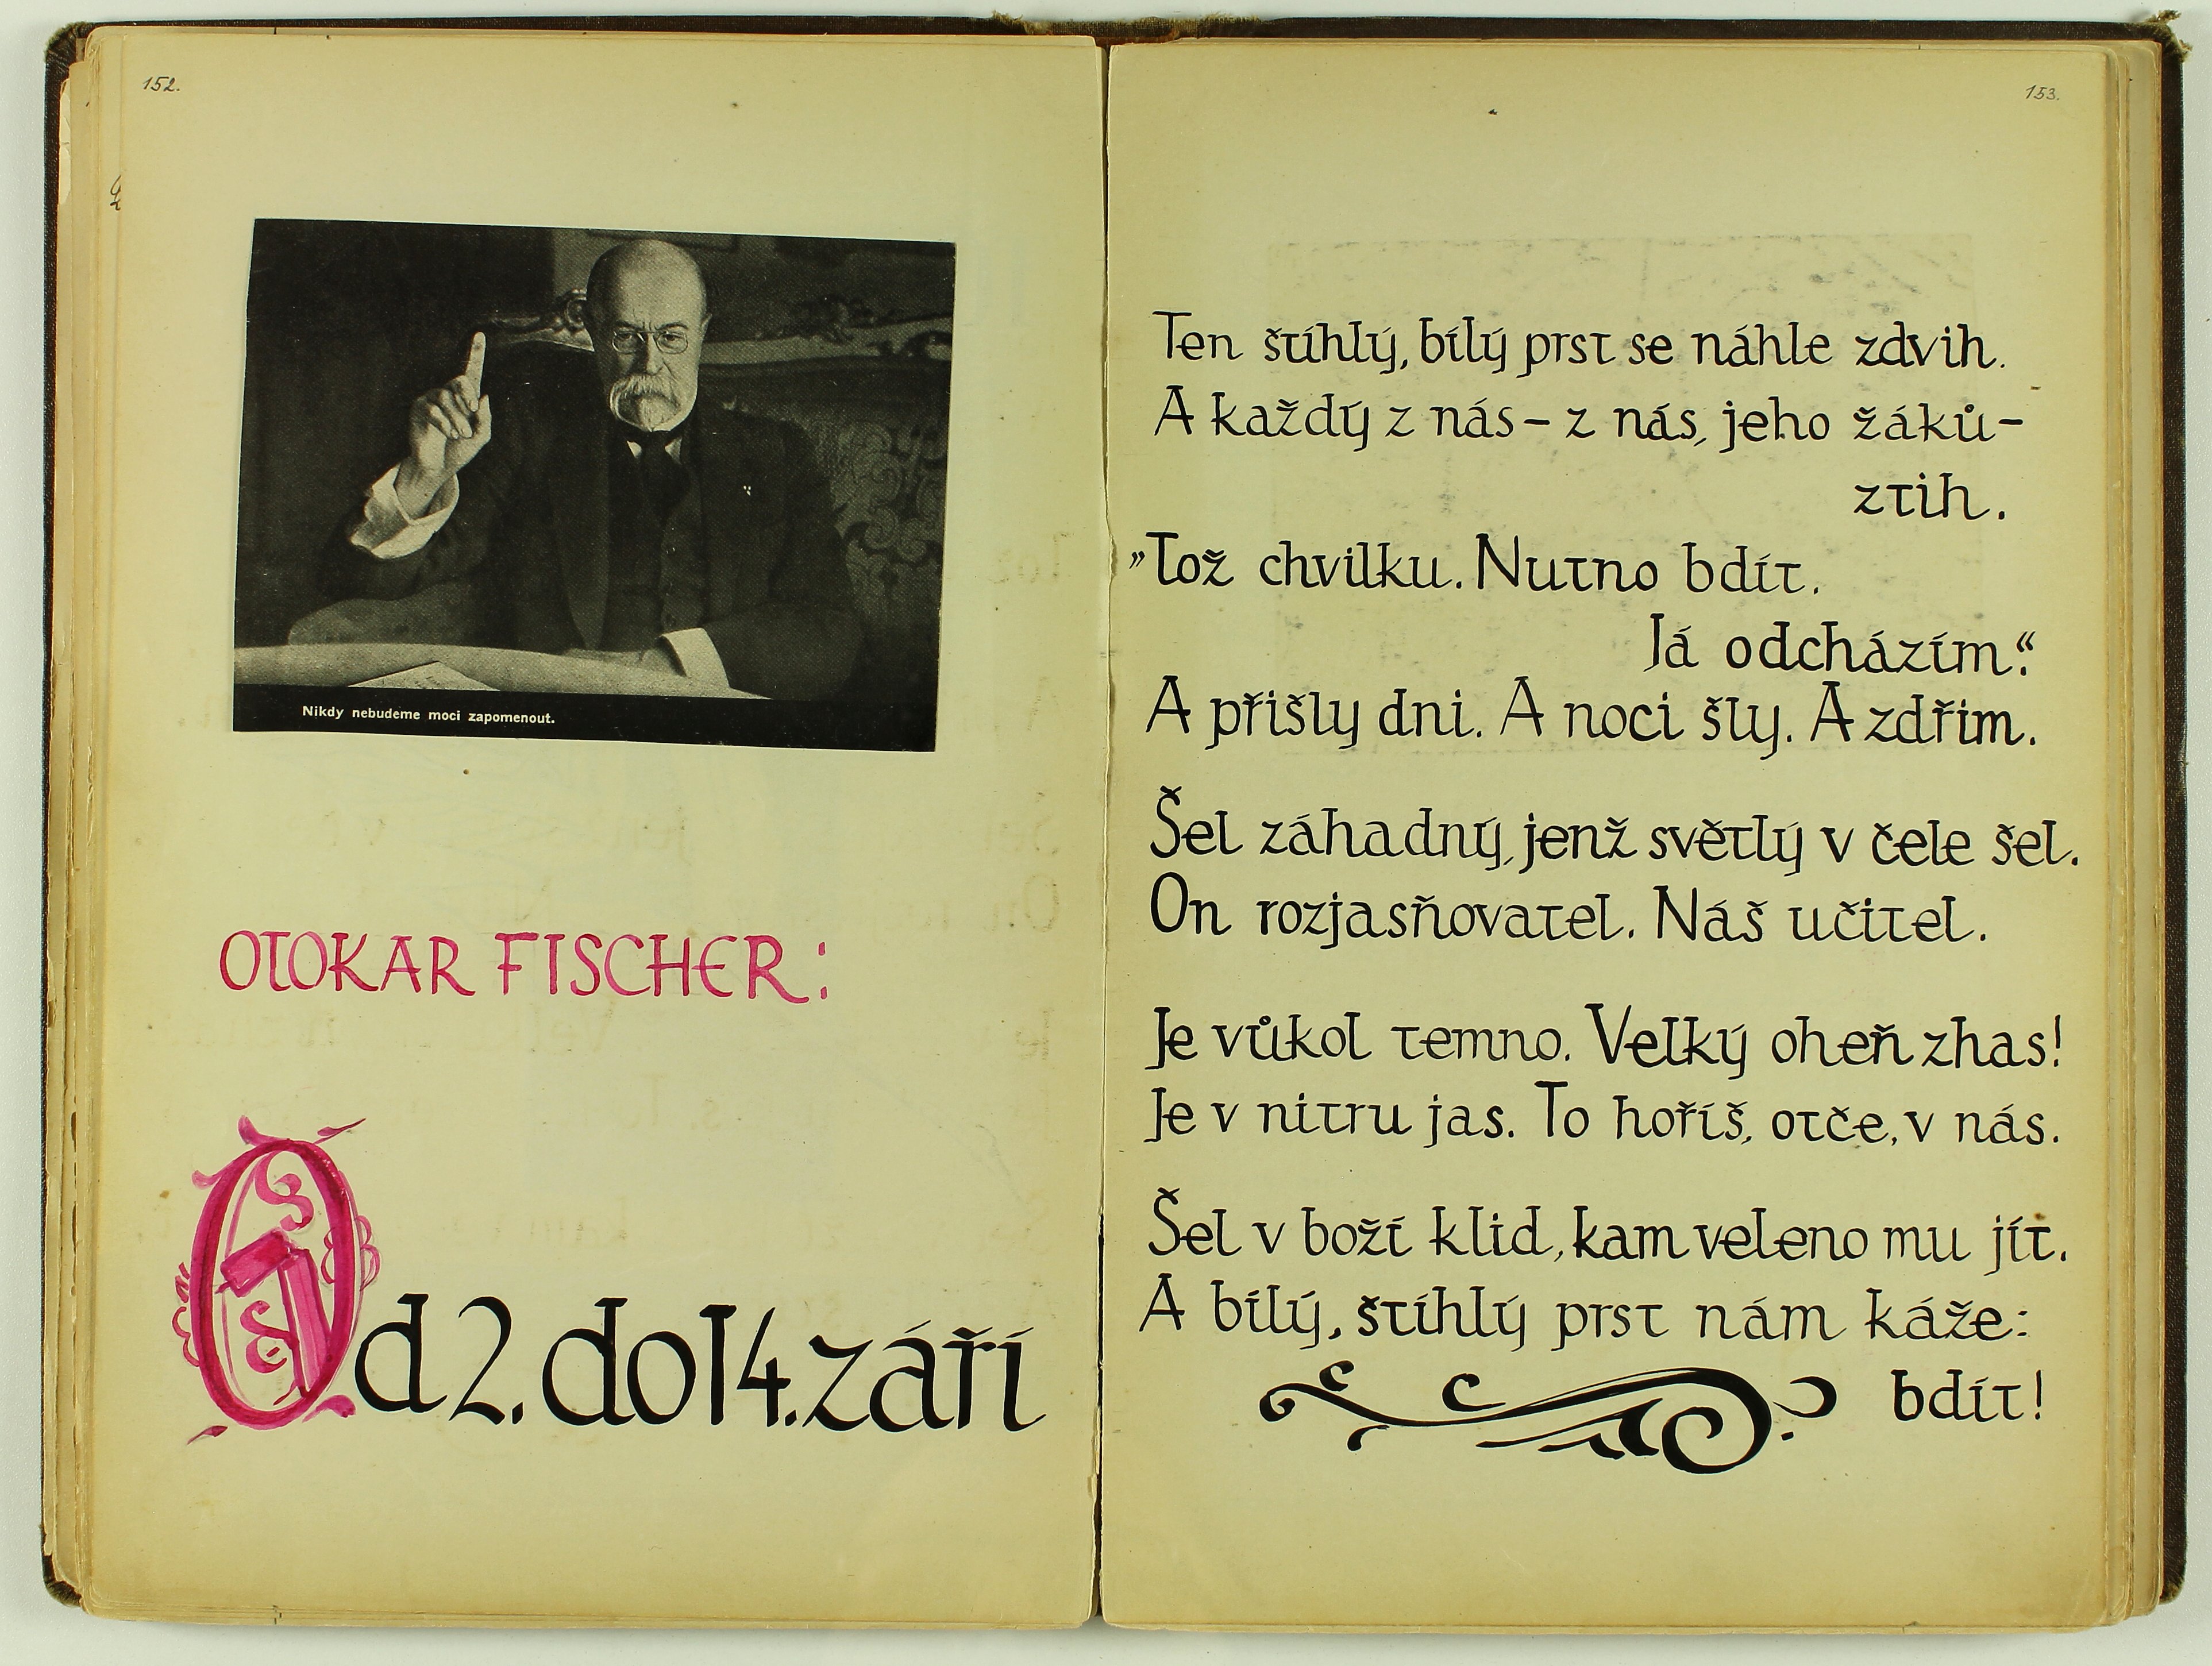 152.
Nikdy nebudeme moci zapomenout.
OTOKAR FISCHER:
Od 2. do 14. září
153.
Ten štíhlý, bílý prst se náhle zdvih.
A každý z nás – z nás, jeho žáků –
ztih.
„Tož chvilku. Nutno bdít.
Já odcházím.“
A přišly dni. A noci šly. A zdřim.
Šel záhadný, jenž světlý v čele šel.
On rozjasňovatel. Náš učitel.
Je vůkol temno. Velký oheň zhas!
Je v nitru jas. To hoříš, otče, v nás.
Šel v boží klid, kam veleno mu jít.
A bílý, štíhlý prst nám káže:
bdít!